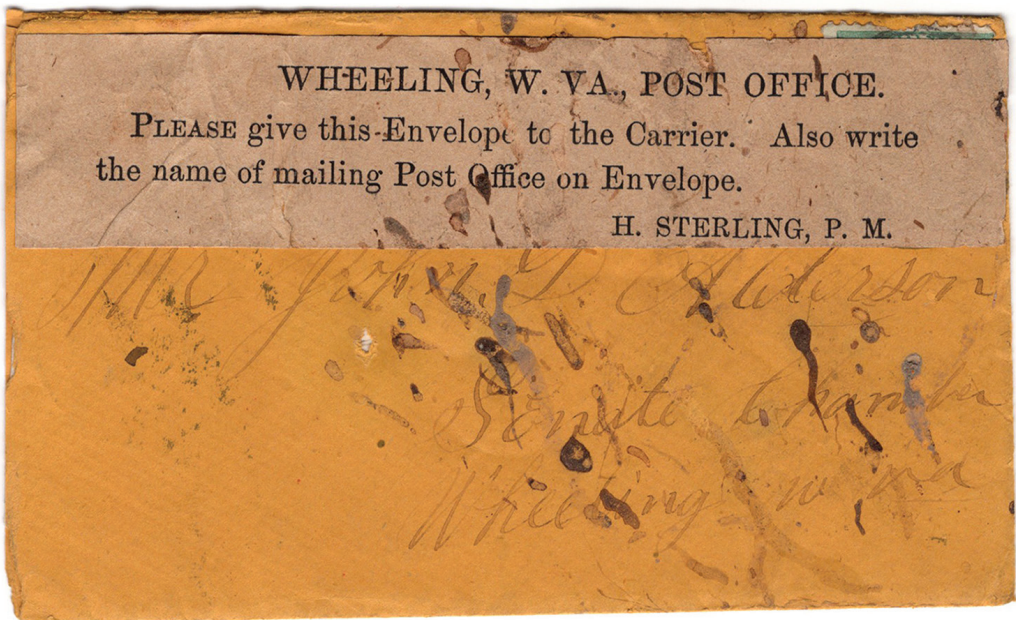 WHEELING, W. VA., POST OFFICE.
PLEASE give this Envelope to the Carrier. Also write
the name of mailing Post Office on Envelope.
H. STERLING, P. M.
Mr John. D Alderson
Senate Chamber
Wheeling w va